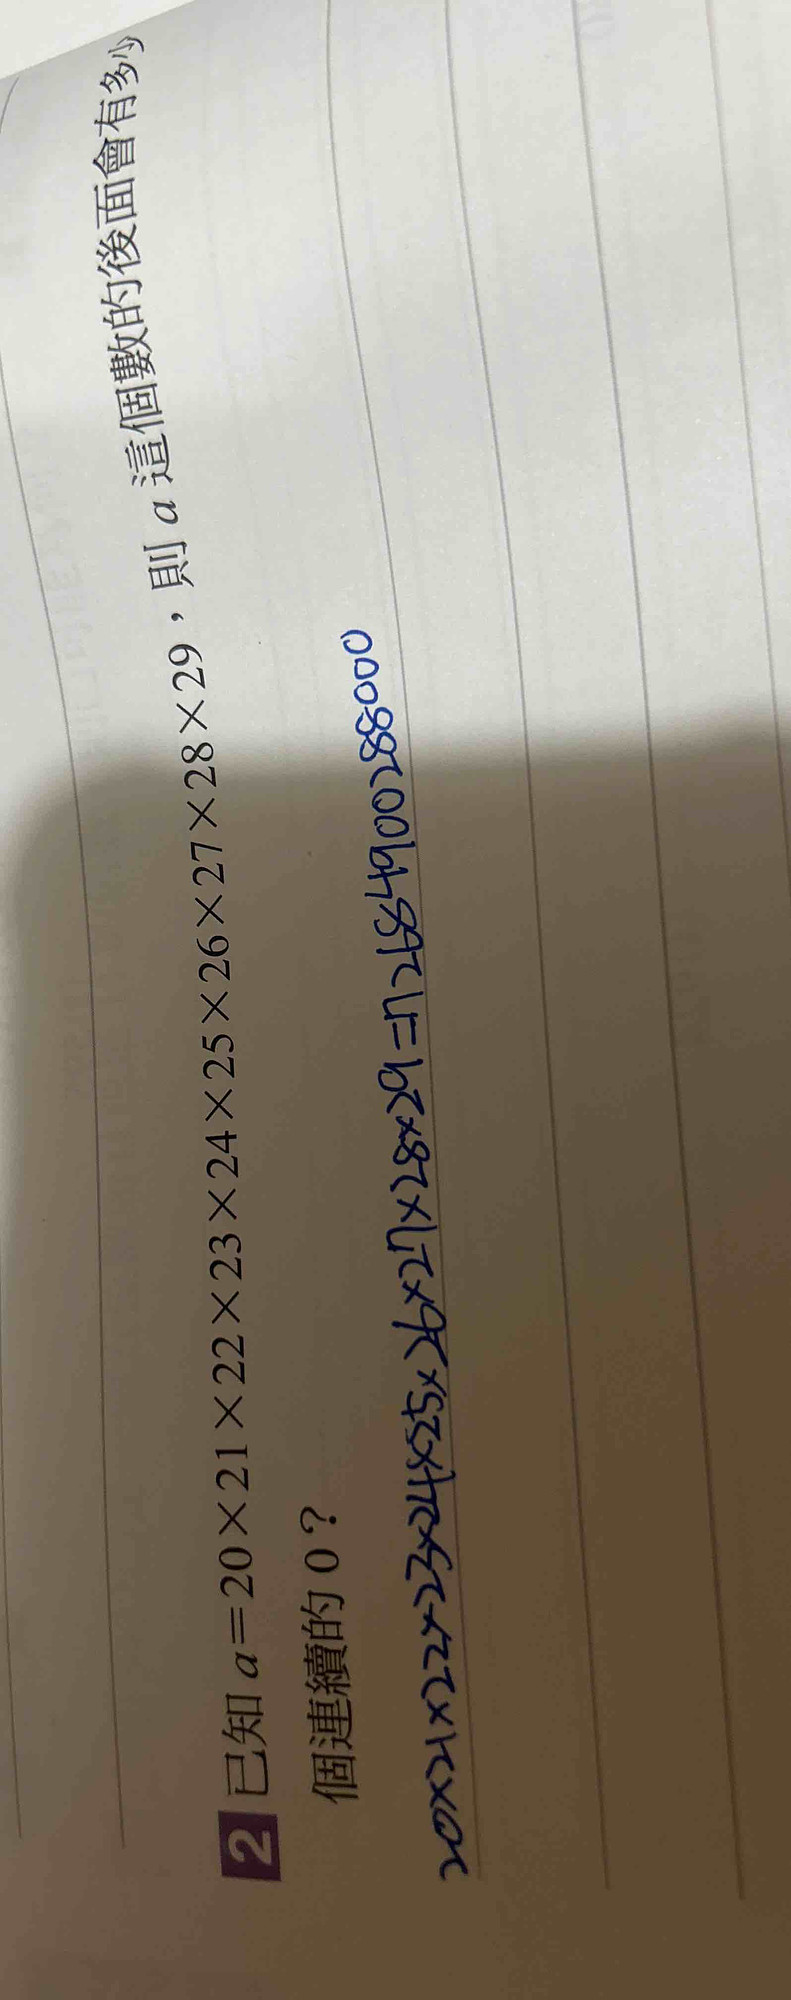 2 已知 a=20×21×22×23×24×25×26×27×28×29，則 a 這個數的後面會有多少
個連續的 0？
20×21×22×23×24×25×26×27×28×29=72684900288000